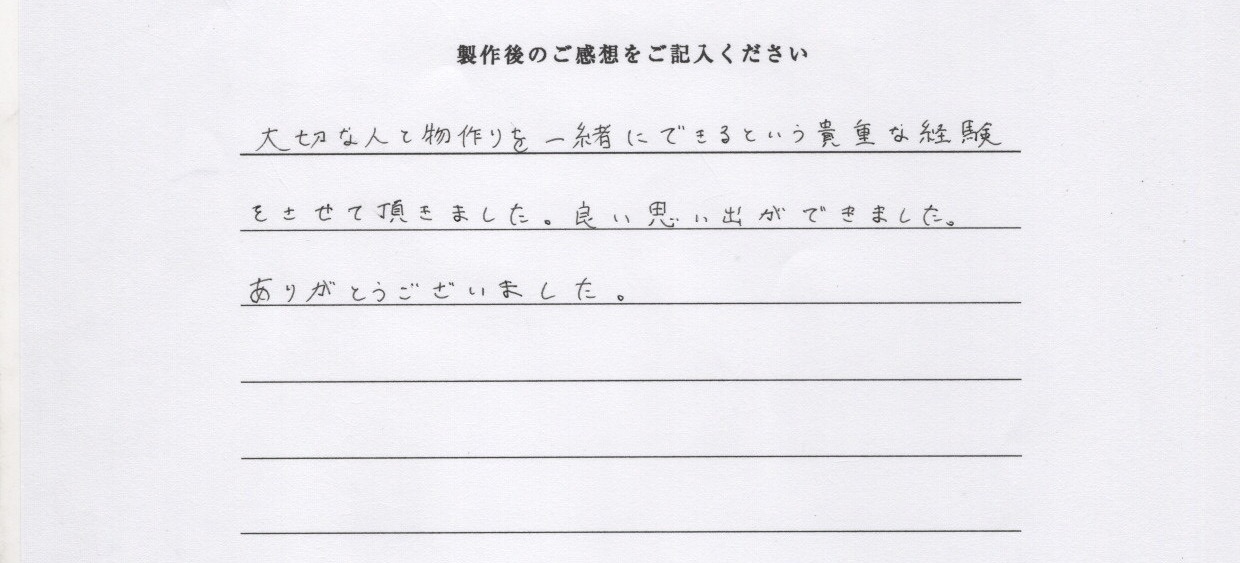 製作後のご感想をご記入ください
大切な人と物作りを一緒にできるという貴重な経験
をさせて頂きました。良い思い出ができました。
ありがとうございました。